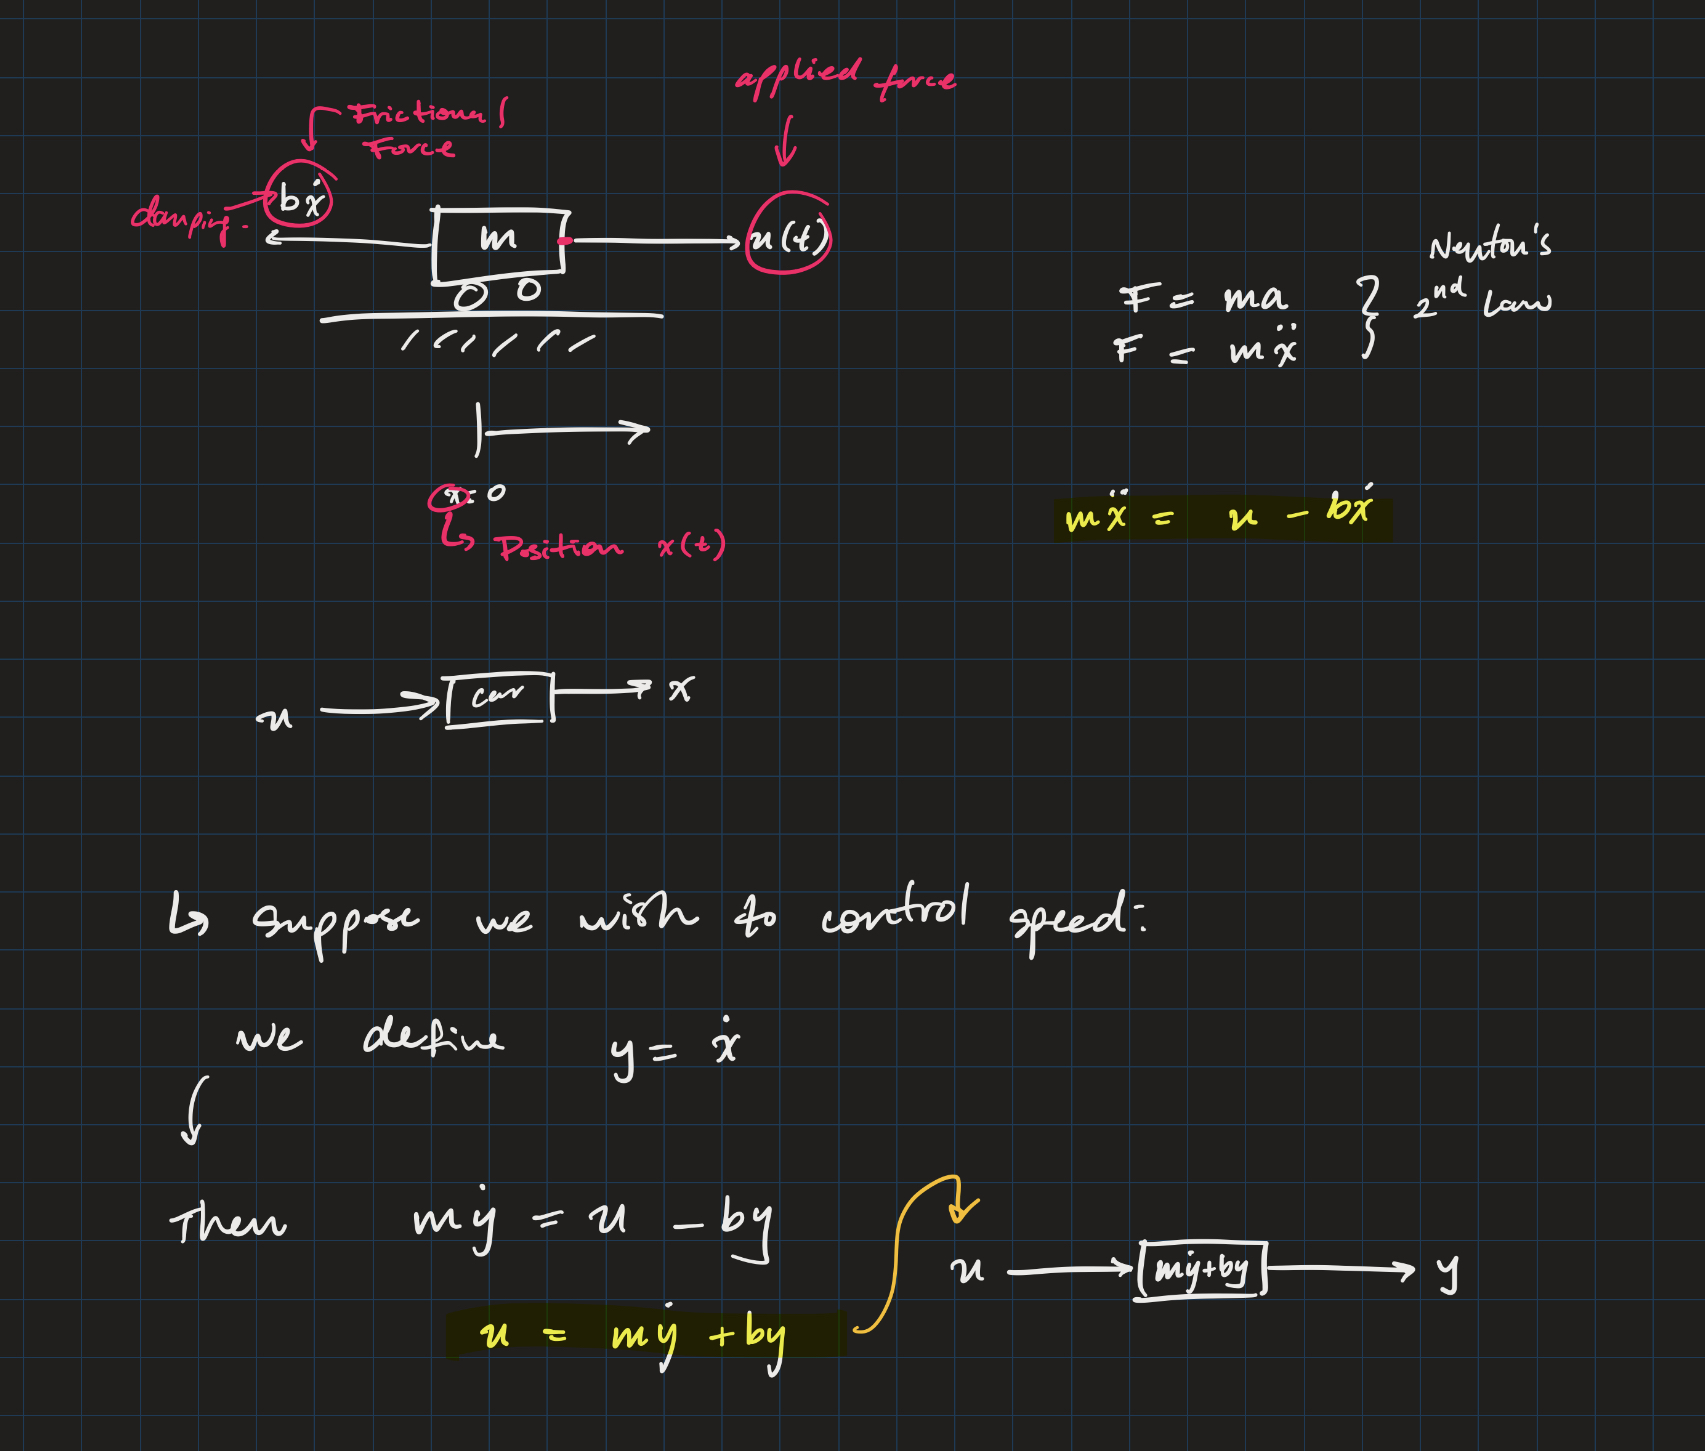 applied force
Frictional
Force
bẋ
damping.
m
u(t)
Newton's
F = ma
2nd Law
F = mẍ
x = 0
Position x(t)
mẍ = u - bẋ
u
car
x
↳ suppose we wish to control speed:
we define y = ẋ
Then mẏ = u - by
u
mẏ+by
y
u = mẏ + by